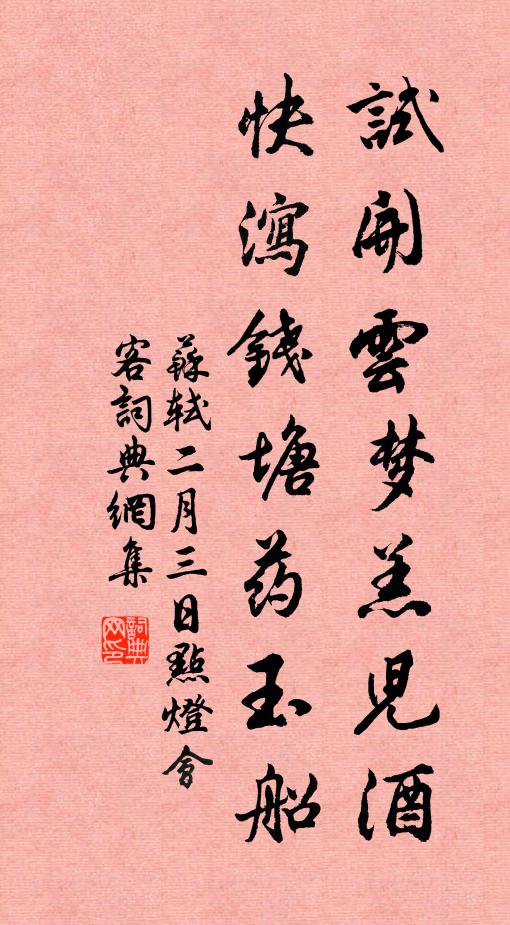 試開雲梦羔児酒
快瀉錢塘药玉船
蘇軾二月三日點燈會
客詞典網集
詞典
网印